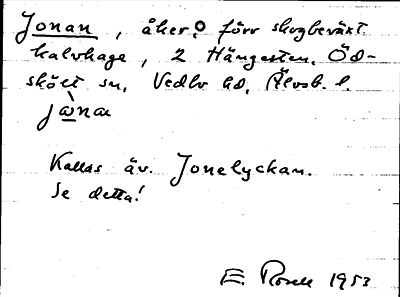 Jonan, åker, förr skogbeväxt
kalvhage, 2 Hängesten, Öd-
skölt sn, Vedbo hd, Älvsb. l.
jònan
Kallas äv. Jonelyckan.
Se detta!
E. Rosell 1953